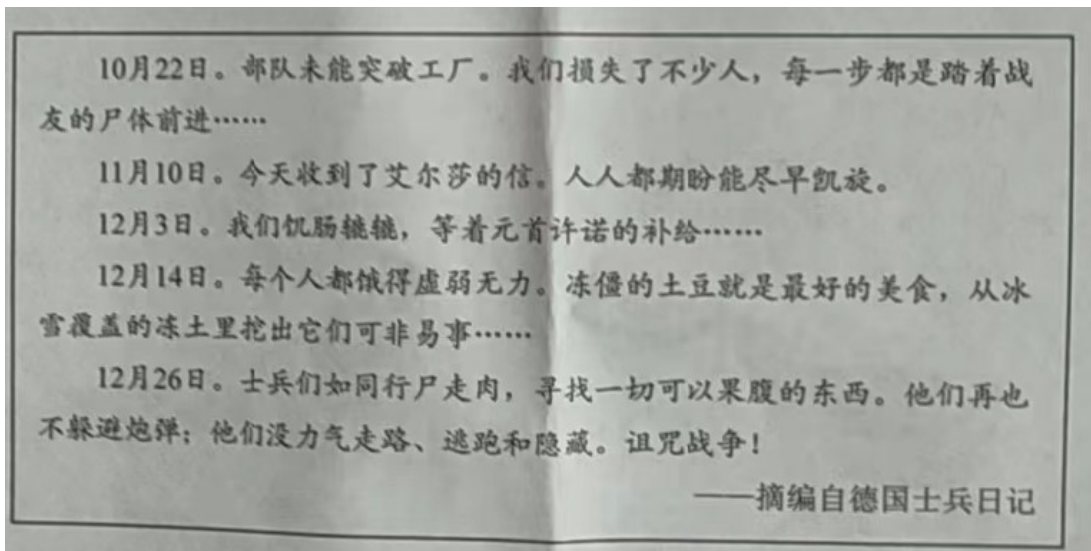 10月22日。部队未能突破工厂。我们损失了不少人，每一步都是踏着战
友的尸体前进……
11月10日。今天收到了艾尔莎的信。人人都期盼能尽早凯旋。
12月3日。我们饥肠辘辘，等着元首许诺的补给……
12月14日。每个人都饿得虚弱无力。冻僵的土豆就是最好的美食，从冰
雪覆盖的冻土里挖出它们可非易事……
12月26日。士兵们如同行尸走肉，寻找一切可以果腹的东西。他们再也
不躲避炮弹；他们没力气走路、逃跑和隐藏。诅咒战争！
——摘编自德国士兵日记